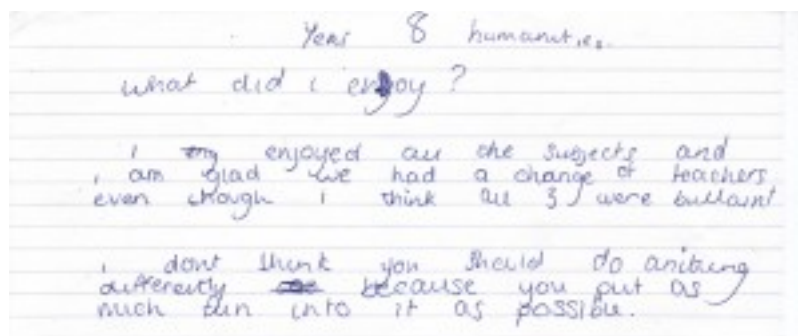 Year 8 humanities.
what did i enjoy?
i enjoyed all the subjects and
i am glad we had a change of teachers
even though i think all 3 were bulliant
i dont think you should do anithing
differently because you put as
much fun into it as possible.